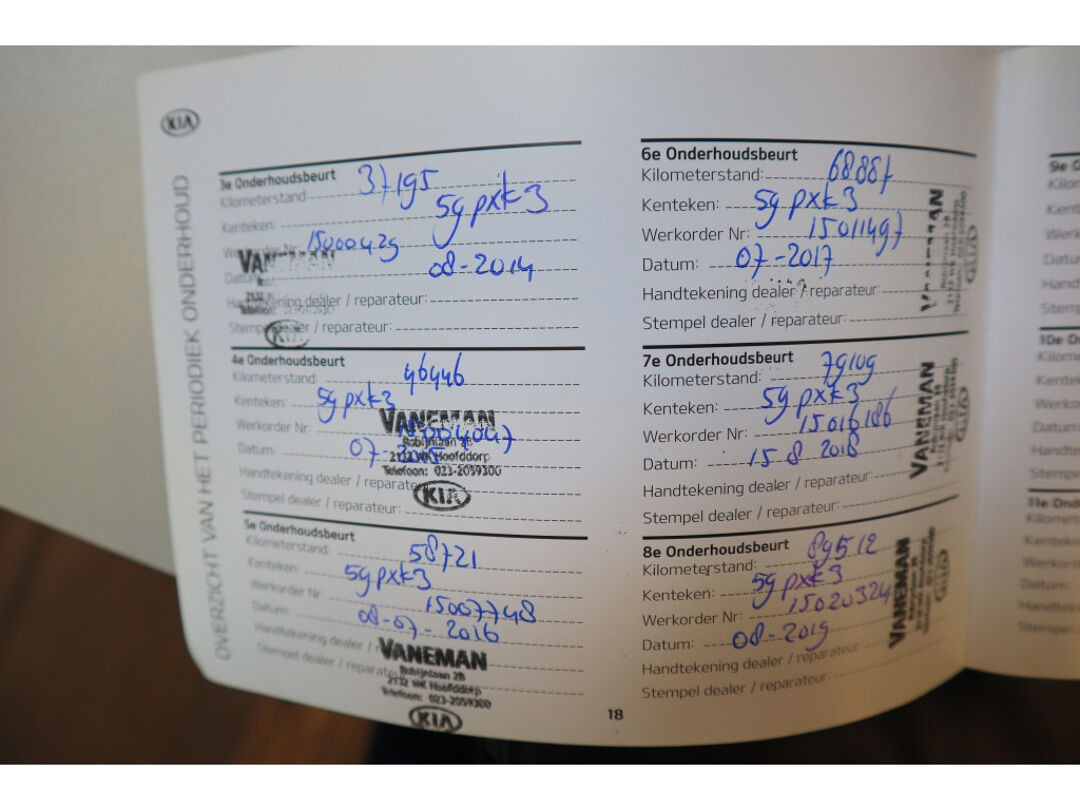 KIA
OVERZICHT VAN HET PERIODIEK ONDERHOUD
3e Onderhoudsbeurt
Kilometerstand: 37195
Kenteken: 5gpxk3
Werkorder Nr: 15000429
Datum: 08-2014
Handtekening dealer / reparateur:
Stempel dealer / reparateur:
KIA
4e Onderhoudsbeurt
Kilometerstand: 46446
Kenteken: 5gpxk3
Werkorder Nr:
Datum: 07-2015
Handtekening dealer / reparateur:
Stempel dealer / reparateur:
VANEMAN
Robijnlaan 2B
2132 WK Hoofddorp
Telefoon: 023-2059300
KIA
5e Onderhoudsbeurt
Kilometerstand: 58721
Kenteken: 5gpxk3
Werkorder Nr: 15007748
Datum: 08-07-2016
Handtekening dealer /
Stempel dealer / reparateur
VANEMAN
Robijnlaan 2B
2132 WK Hoofddorp
Telefoon: 023-2059300
KIA
6e Onderhoudsbeurt
Kilometerstand: 68887
Kenteken: 5gpxk3
Werkorder Nr: 15011497
Datum: 07-2017
Handtekening dealer / reparateur:
Stempel dealer / reparateur:
VANEMAN
KIA
7e Onderhoudsbeurt
Kilometerstand: 79109
Kenteken: 5gpxk3
Werkorder Nr: 15016186
Datum: 15 8 2018
Handtekening dealer / reparateur:
Stempel dealer / reparateur:
VANEMAN
KIA
8e Onderhoudsbeurt
Kilometerstand: 89512
Kenteken: 5gpxk3
Werkorder Nr: 15020324
Datum: 08-2019
Handtekening dealer / reparateur:
Stempel dealer / reparateur:
VANEMAN
KIA
18